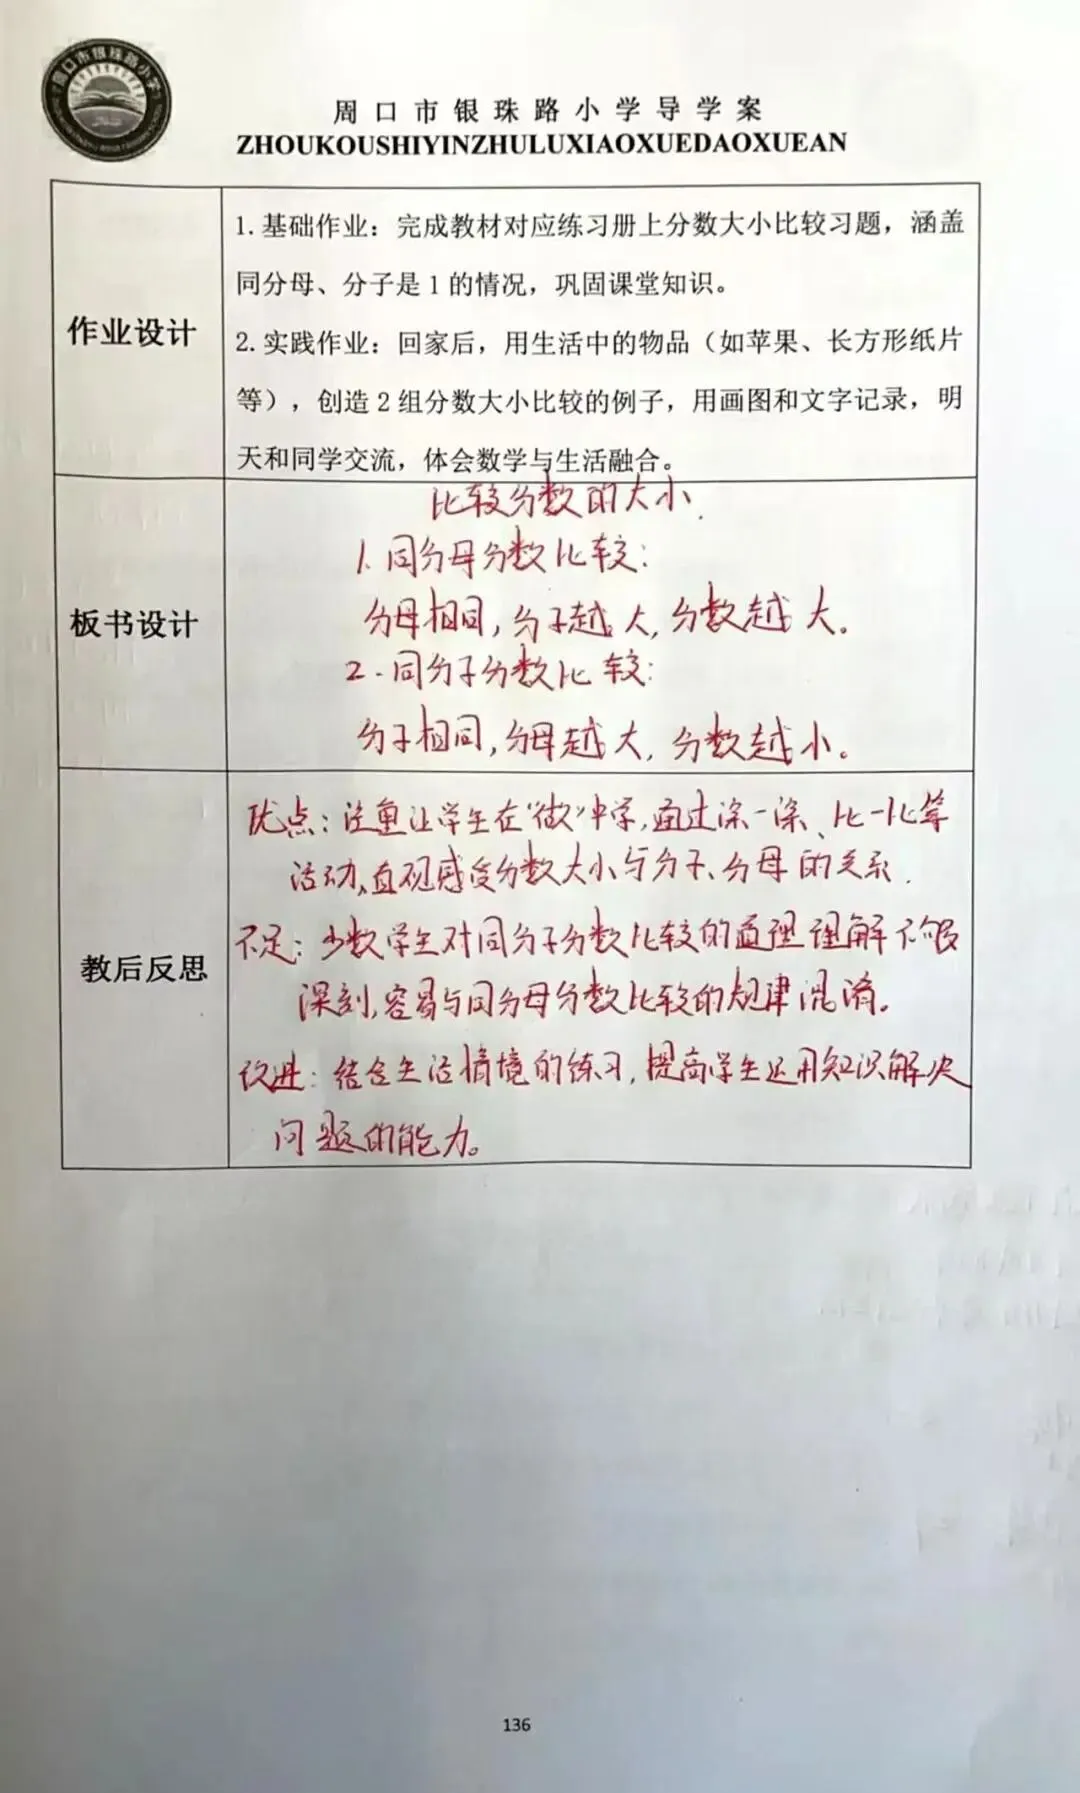 周口市银珠路小学
周口市银珠路小学导学案
ZHOUKOUSHIYINZHULUXIAOXUEDAOXUEAN
作业设计
1. 基础作业：完成教材对应练习册上分数大小比较习题，涵盖
同分母、分子是 1 的情况，巩固课堂知识。
2. 实践作业：回家后，用生活中的物品（如苹果、长方形纸片
等），创造 2 组分数大小比较的例子，用画图和文字记录，明
天和同学交流，体会数学与生活融合。
板书设计
比较分数的大小
1. 同分母分数比较：
分母相同，分子越大，分数越大。
2. 同分子分数比较：
分子相同，分母越大，分数越小。
教后反思
优点：注重让学生在“做”中学，通过涂一涂、比一比等
活动，直观感受分数大小与分子、分母的关系.
不足：少数学生对同分子分数比较的道理理解不够
深刻，容易与同分母分数比较的规律混淆。
改进：结合生活情境的练习，提高学生运用知识解决
问题的能力。
136